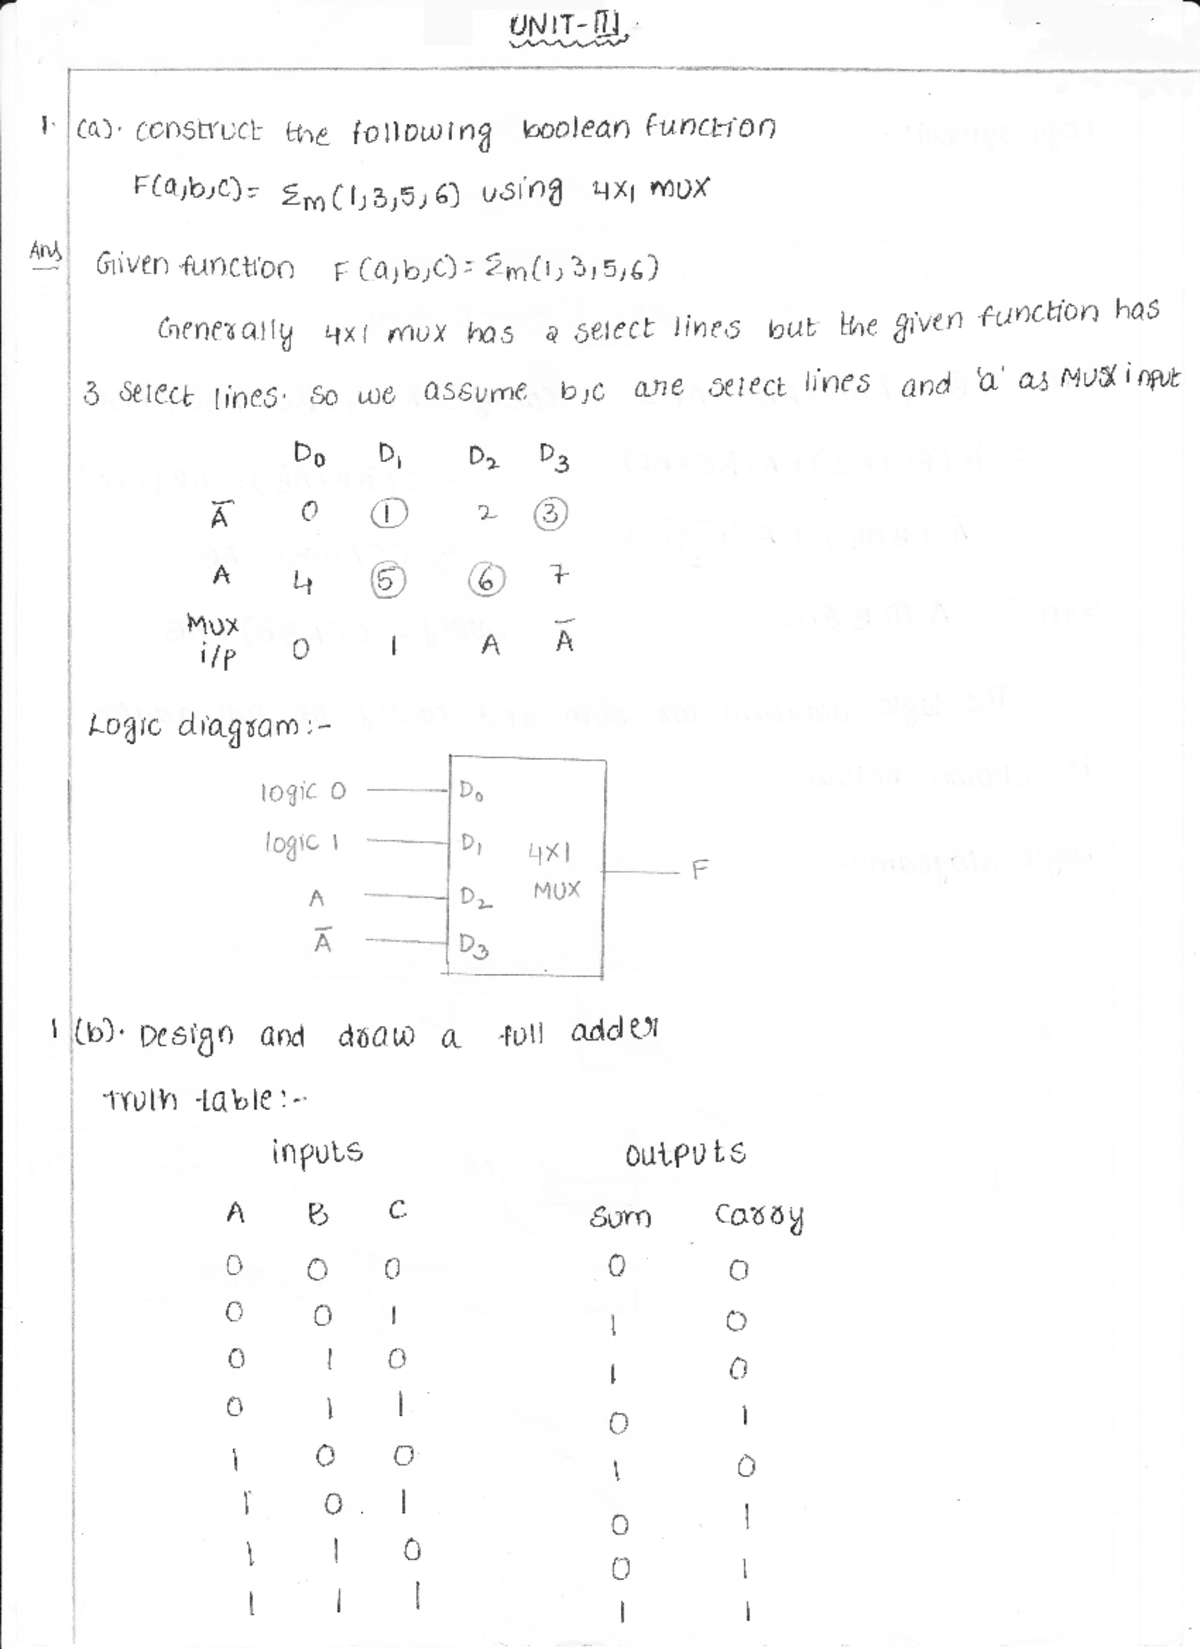 UNIT-III
1. (a). construct the following boolean function
F(a,b,c)= Σm(1,3,5,6) using 4x1 mux
Ans Given function F(a,b,c)= Σm(1,3,5,6)
Generally 4x1 mux has 2 select lines but the given function has
3 select lines. so we assume b,c are select lines and 'a' as MUX input
D0 D1 D2 D3
A̅ 0 ① 2 ③
A 4 ⑤ ⑥ 7
MUX
i/p 0 1 A A̅
Logic diagram:-
logic 0 D0
logic 1 D1 4x1
F
A D2 MUX
A̅ D3
1 (b). Design and draw a full adder
Truth table:-
inputs outputs
A B C Sum Carry
0 0 0 0 0
0 0 1 1 0
0 1 0 1 0
0 1 1 0 1
1 0 0 1 0
1 0 1 0 1
1 1 0 0 1
1 1 1 1 1